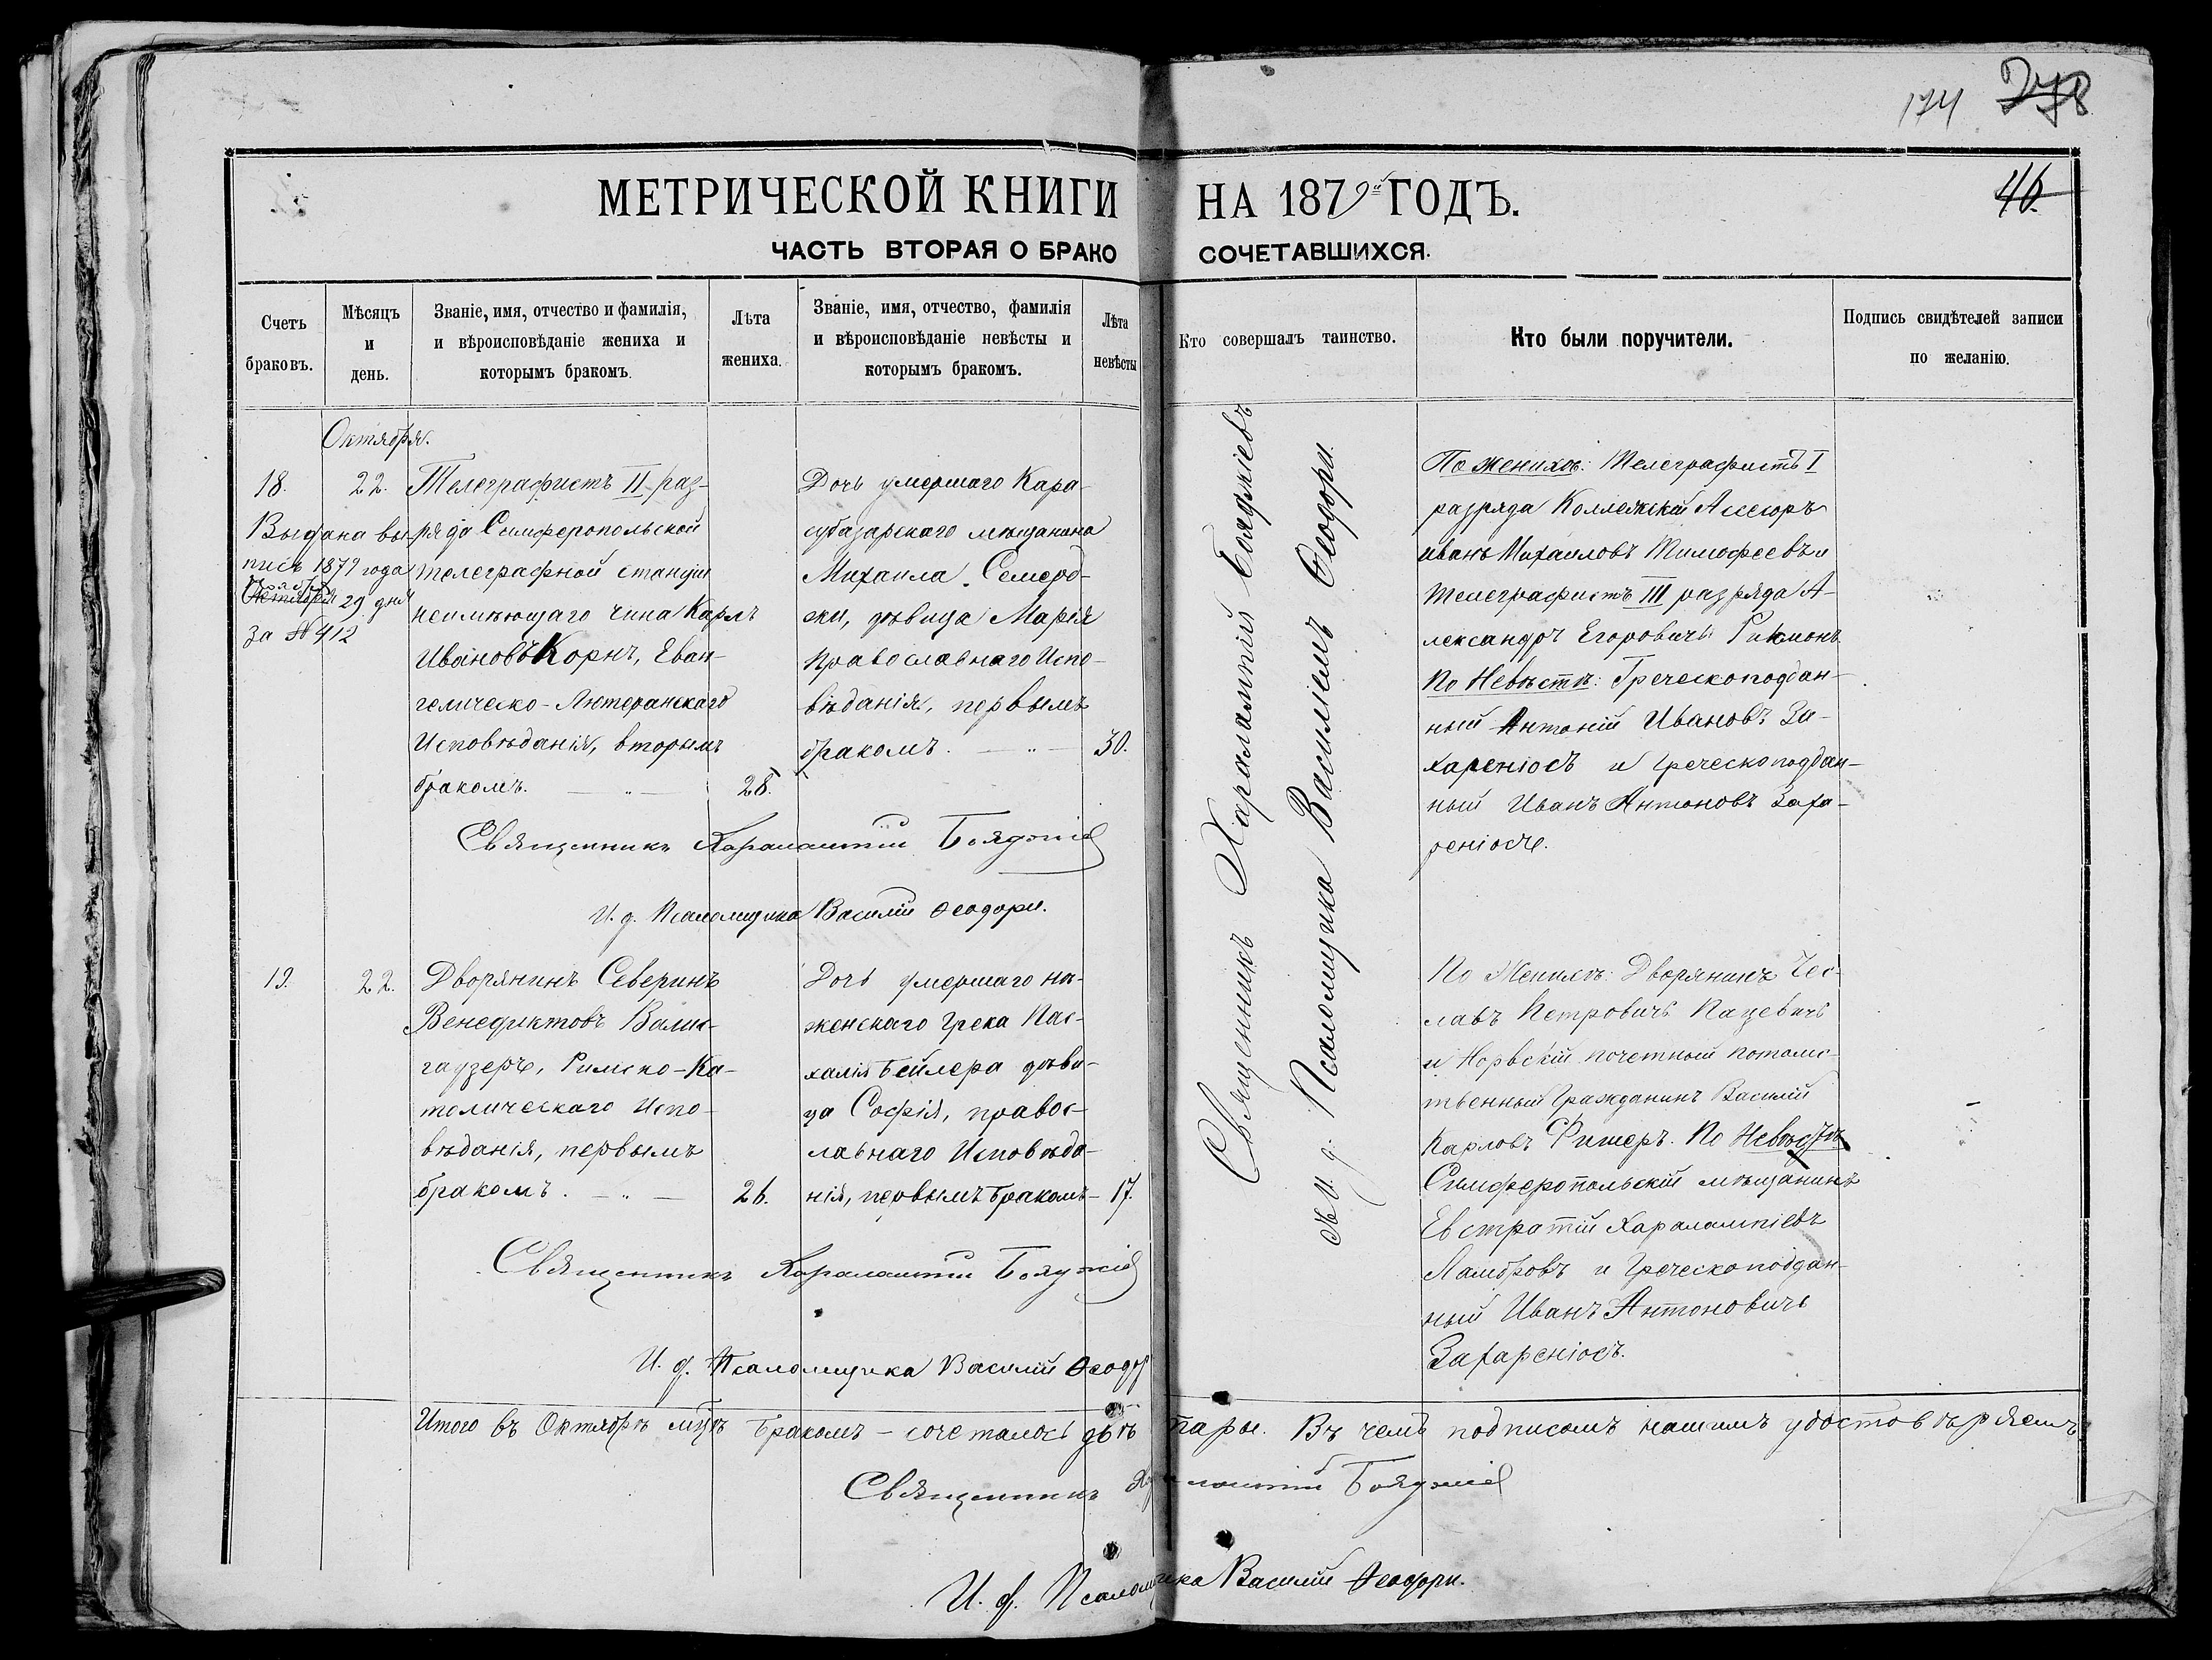 174 278
МЕТРИЧЕСКОЙ КНИГИ НА 1879й ГОДЪ.
46.
ЧАСТЬ ВТОРАЯ О БРАКО СОЧЕТАВШИХСЯ.
Счетъ браковъ.
Мѣсяцъ и день.
Званіе, имя, отчество и фамилія,
и вѣроисповѣданіе жениха и
которымъ бракомъ.
Лѣта жениха.
Званіе, имя, отчество, фамилія
и вѣроисповѣданіе невѣсты и
которымъ бракомъ.
Лѣта невѣсты
Кто совершалъ таинство.
Кто были поручители.
Подпись свидѣтелей записи
по желанію.
Октября.
18.
22.
Выдана вы-
пись 1879 года
Октября 29 дня
за № 412
Телеграфистъ II раз-
ряда Симферопольской
телеграфной станціи
неимѣющаго чина Карлъ
Ивановъ Корнъ, Еван-
гелическо-Лютеранскаго
Исповѣданія, вторымъ
бракомъ.
28.
Дочь умершаго Кара-
субазарскаго мѣщанина
Михаила Семерд-
жи, дѣвица Марія
Православнаго Испо-
вѣданія, первымъ
бракомъ.
30.
Священникъ Харалампій Бояджіевъ
и И. д. Псаломщика Василій Ѳеодори.
По женихѣ: Телеграфистъ I
разряда Коллежскій Ассесоръ
Иванъ Михаиловъ Тимофеевъ и
Телеграфистъ III разряда А-
лександръ Егоровичъ
По Невѣстѣ: Греческоподдан-
ный Антоній Ивановъ За-
хареніосъ и Греческоподдан-
ный Иванъ Антоновъ Заха-
реніосъ.
Священникъ Харалампій Бояджіев
И. д. Псаломщика Василій Ѳеодори.
19.
22.
Дворянинъ Северинъ
Венедиктовъ Валис-
гаузеръ, Римско-Ка-
толическаго Испо-
вѣданія, первымъ
бракомъ.
26.
Дочь умершаго
женскаго Грека Пас-
халія Бейлера дѣви-
ца Софія, правос-
лавнаго Исповѣда-
нія, первымъ бракомъ
17.
По Женихѣ: Дворянинъ Чес-
лавъ Петровичъ Пацевичъ
и почетный потомс-
твенный Гражданинъ Василій
Карловъ Ритеръ. По Невѣстѣ
Симферопольскій мѣщанинъ
Евстратій Харалампіевъ
Ламбровъ и Греческоподдан-
ный Иванъ Антоновичъ
Захареніосъ.
Священникъ Харалампій Бояджіев
И. д. Псаломщика Василій Ѳеодори
Итого въ Октябрѣ мцѣ бракомъ – сочеталось двѣ пары. Въ чемъ подписомъ нашимъ удостовѣряемъ
Священникъ Харалампій Бояджіев
И. д. Псаломщика Василій Ѳеодори.